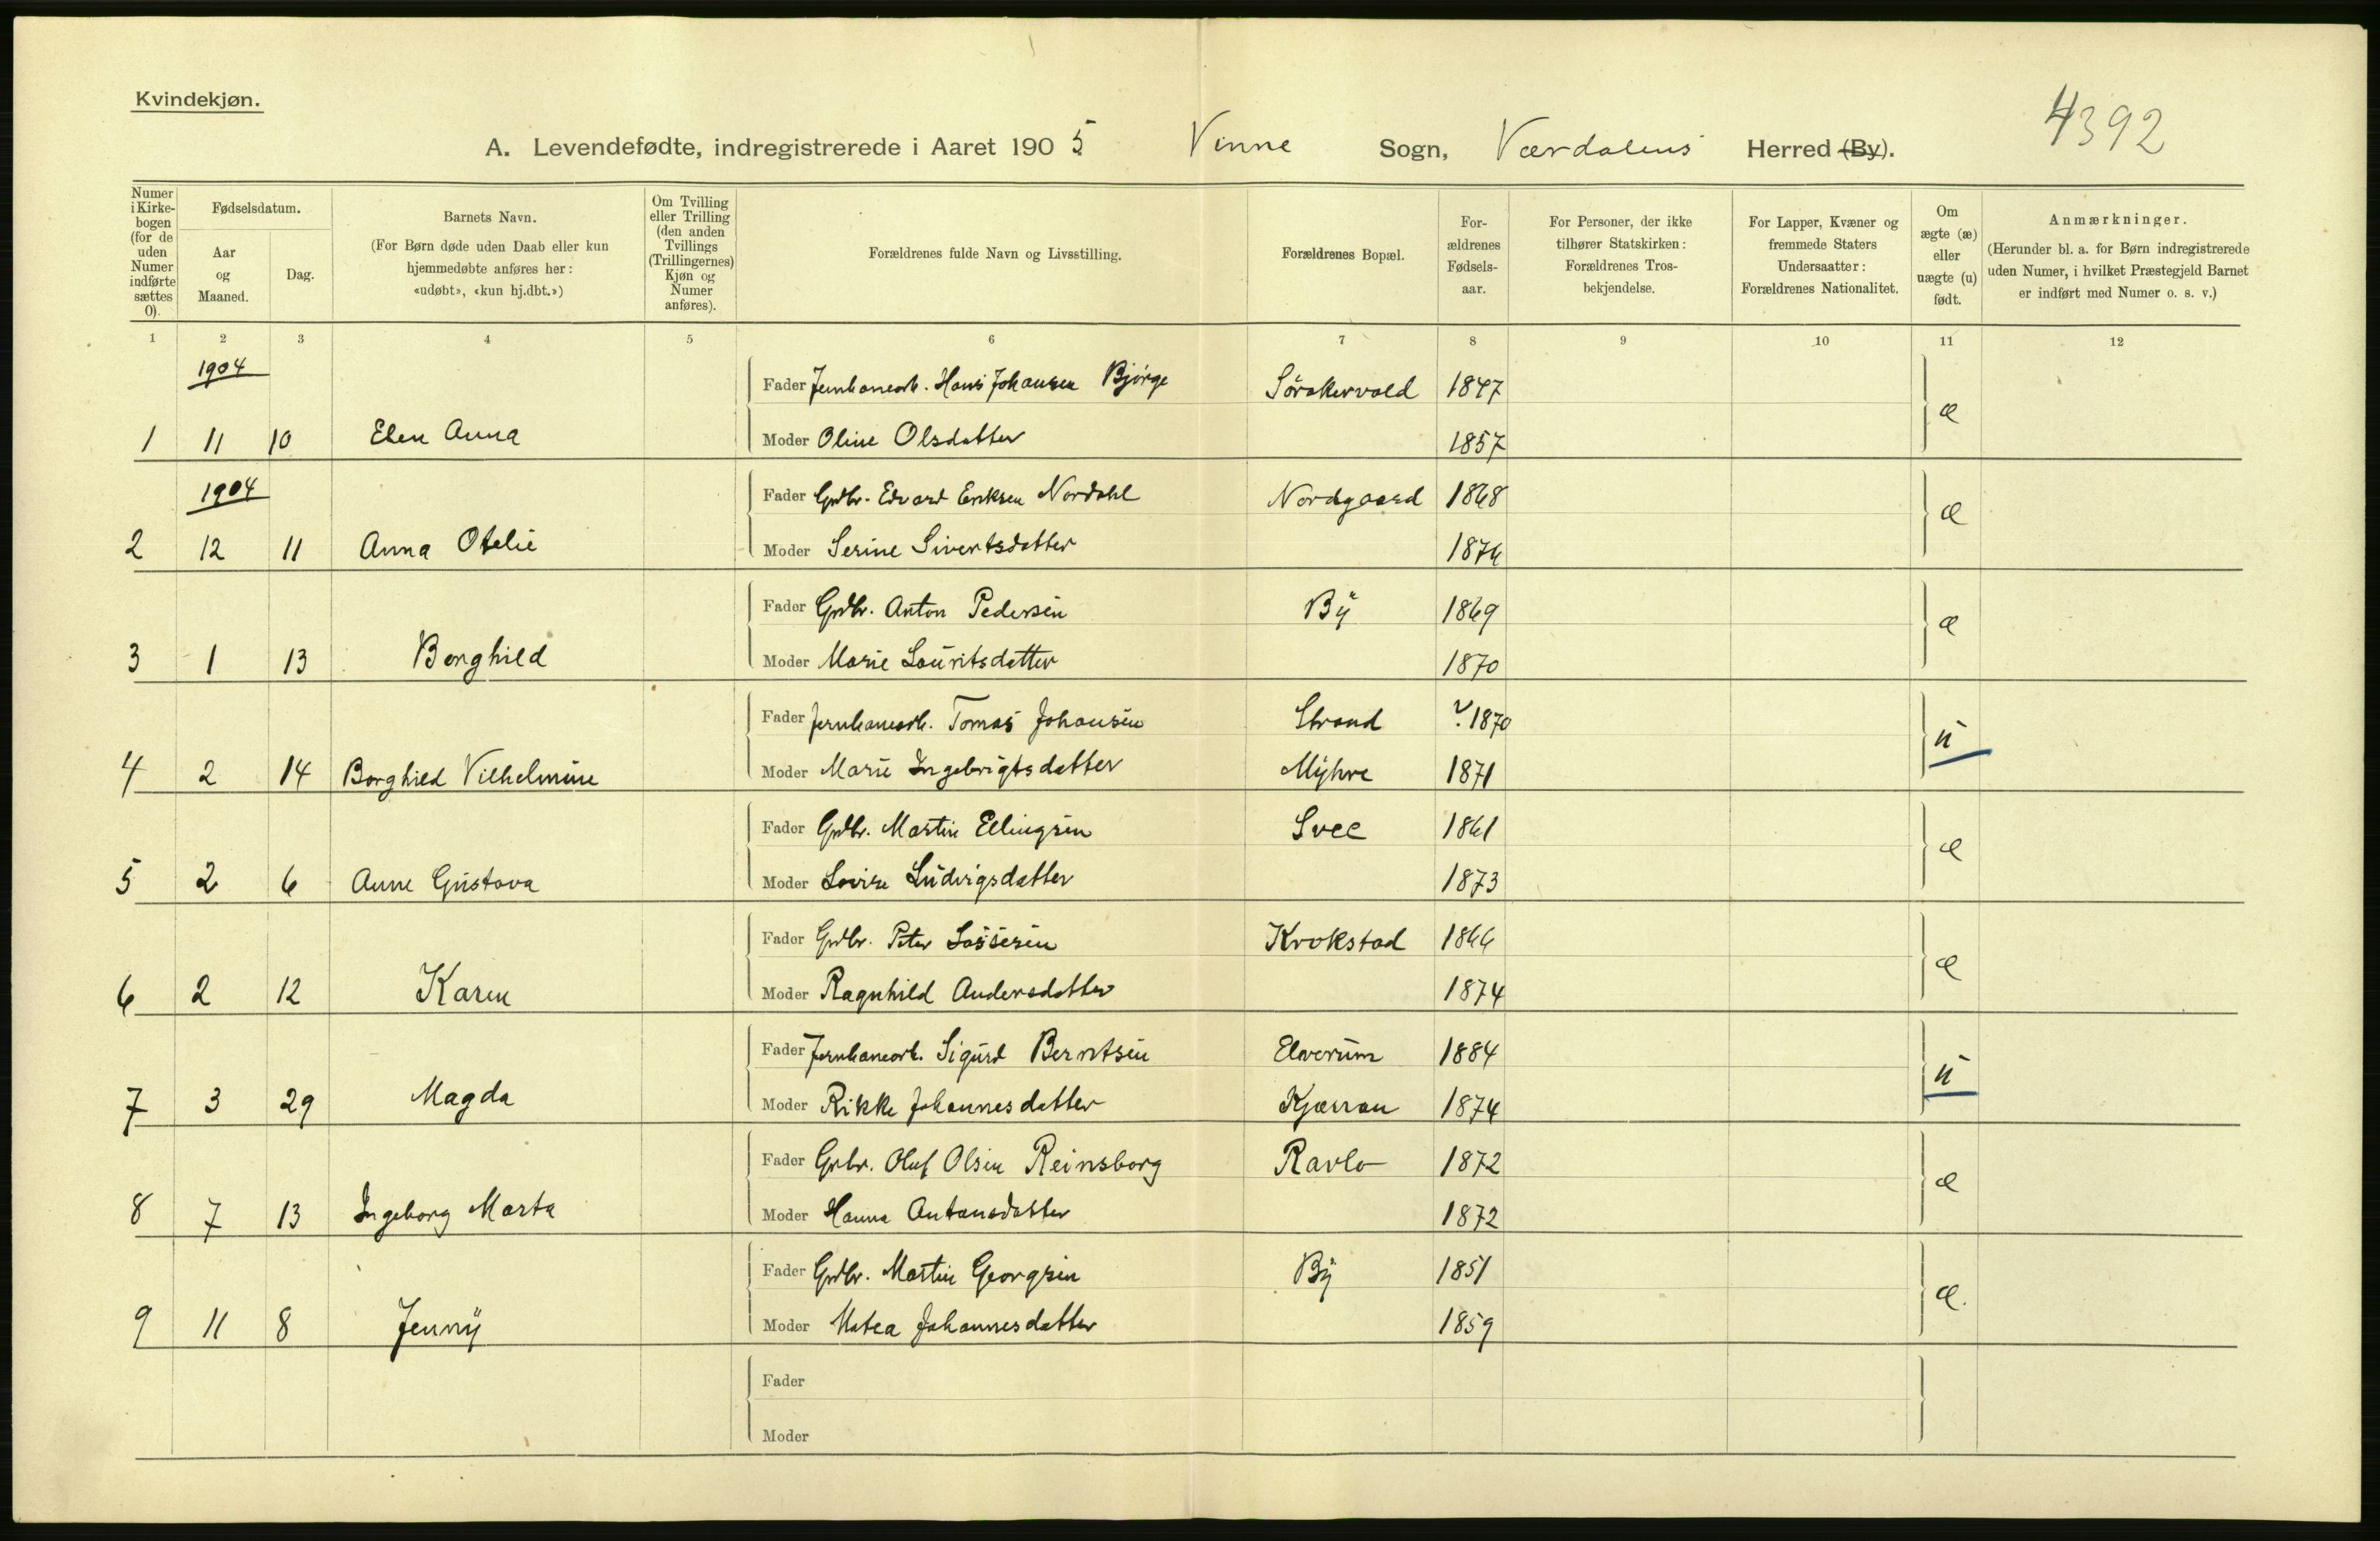 Kvindekjøn.
4392
A. Levendefødte, indregistrerede i Aaret 1905 Vinne Sogn, Værdalens Herred (By).
Numer i Kirke-bogen (for de uden Numer indførte sættes 0).
Fødselsdatum.
Aar og Maaned.
Dag.
Barnets Navn.
(For Børn døde uden Daab eller kun hjemmedøbte anføres her: «udøbt», «kun hj.dbt.»)
Om Tvilling eller Trilling (den anden Tvillings (Trillingernes) Kjøn og Numer anføres).
Forældrenes fulde Navn og Livsstilling.
Forældrenes Bopæl.
For-ældrenes Fødsels-aar.
For Personer, der ikke tilhører Statskirken: Forældrenes Tros-bekjendelse.
For Lapper, Kvæner og fremmede Staters Undersaatter: Forældrenes Nationalitet.
Om ægte (æ) eller uægte (u) født.
Anmærkninger.
(Herunder bl. a. for Børn indregistrerede uden Numer, i hvilket Præstegjeld Barnet er indført med Numer o. s. v.)
1 2 3 4 5 6 7 8 9 10 11 12
1904
Fader Jernbanearb. Hans Johansen Bjørge Sörakervald 1847
æ
1 11 10 Elen Anna Moder Oline Olsdatter 1857
1904
Fader Grdbr. Edvard Eriksen Nordahl Nordgaard 1868
æ
2 12 11 Anna Otelie Moder Serine Sivertsdatter 1876
Fader Grdbr. Anton Pedersen By 1869
æ
3 1 13 Borghild Moder Marie Lauritsdatter 1870
Fader Jernbanearb. Tomas Johansen Strand ? 1870
u
4 2 14 Borghild Vilhelmine Moder Marie Ingebrigtsdatter Myhre 1871
Fader Grdbr. Martin Ellingsen Svee 1861
æ
5 2 6 Anne Gustava Moder Lovise Ludvigsdatter 1873
Fader Grdbr. Peter Lassesen Krokstad 1866
æ
6 2 12 Karen Moder Ragnhild Andersdatter 1874
Fader Jernbanearb. Sigurd Berntsen Elverum 1884
u
7 3 29 Magda Moder Rikke Johannesdatter Kjærran 1874
Fader Grbr. Oluf Olsen Reinsborg Ravlo 1872
æ
8 7 13 Ingeborg Marta Moder Hanna Antonsdatter 1872
Fader Grdbr. Martin Georgsen By 1851
æ.
9 11 8 Jenny Moder Matea Johannesdatter 1859
Fader
Moder